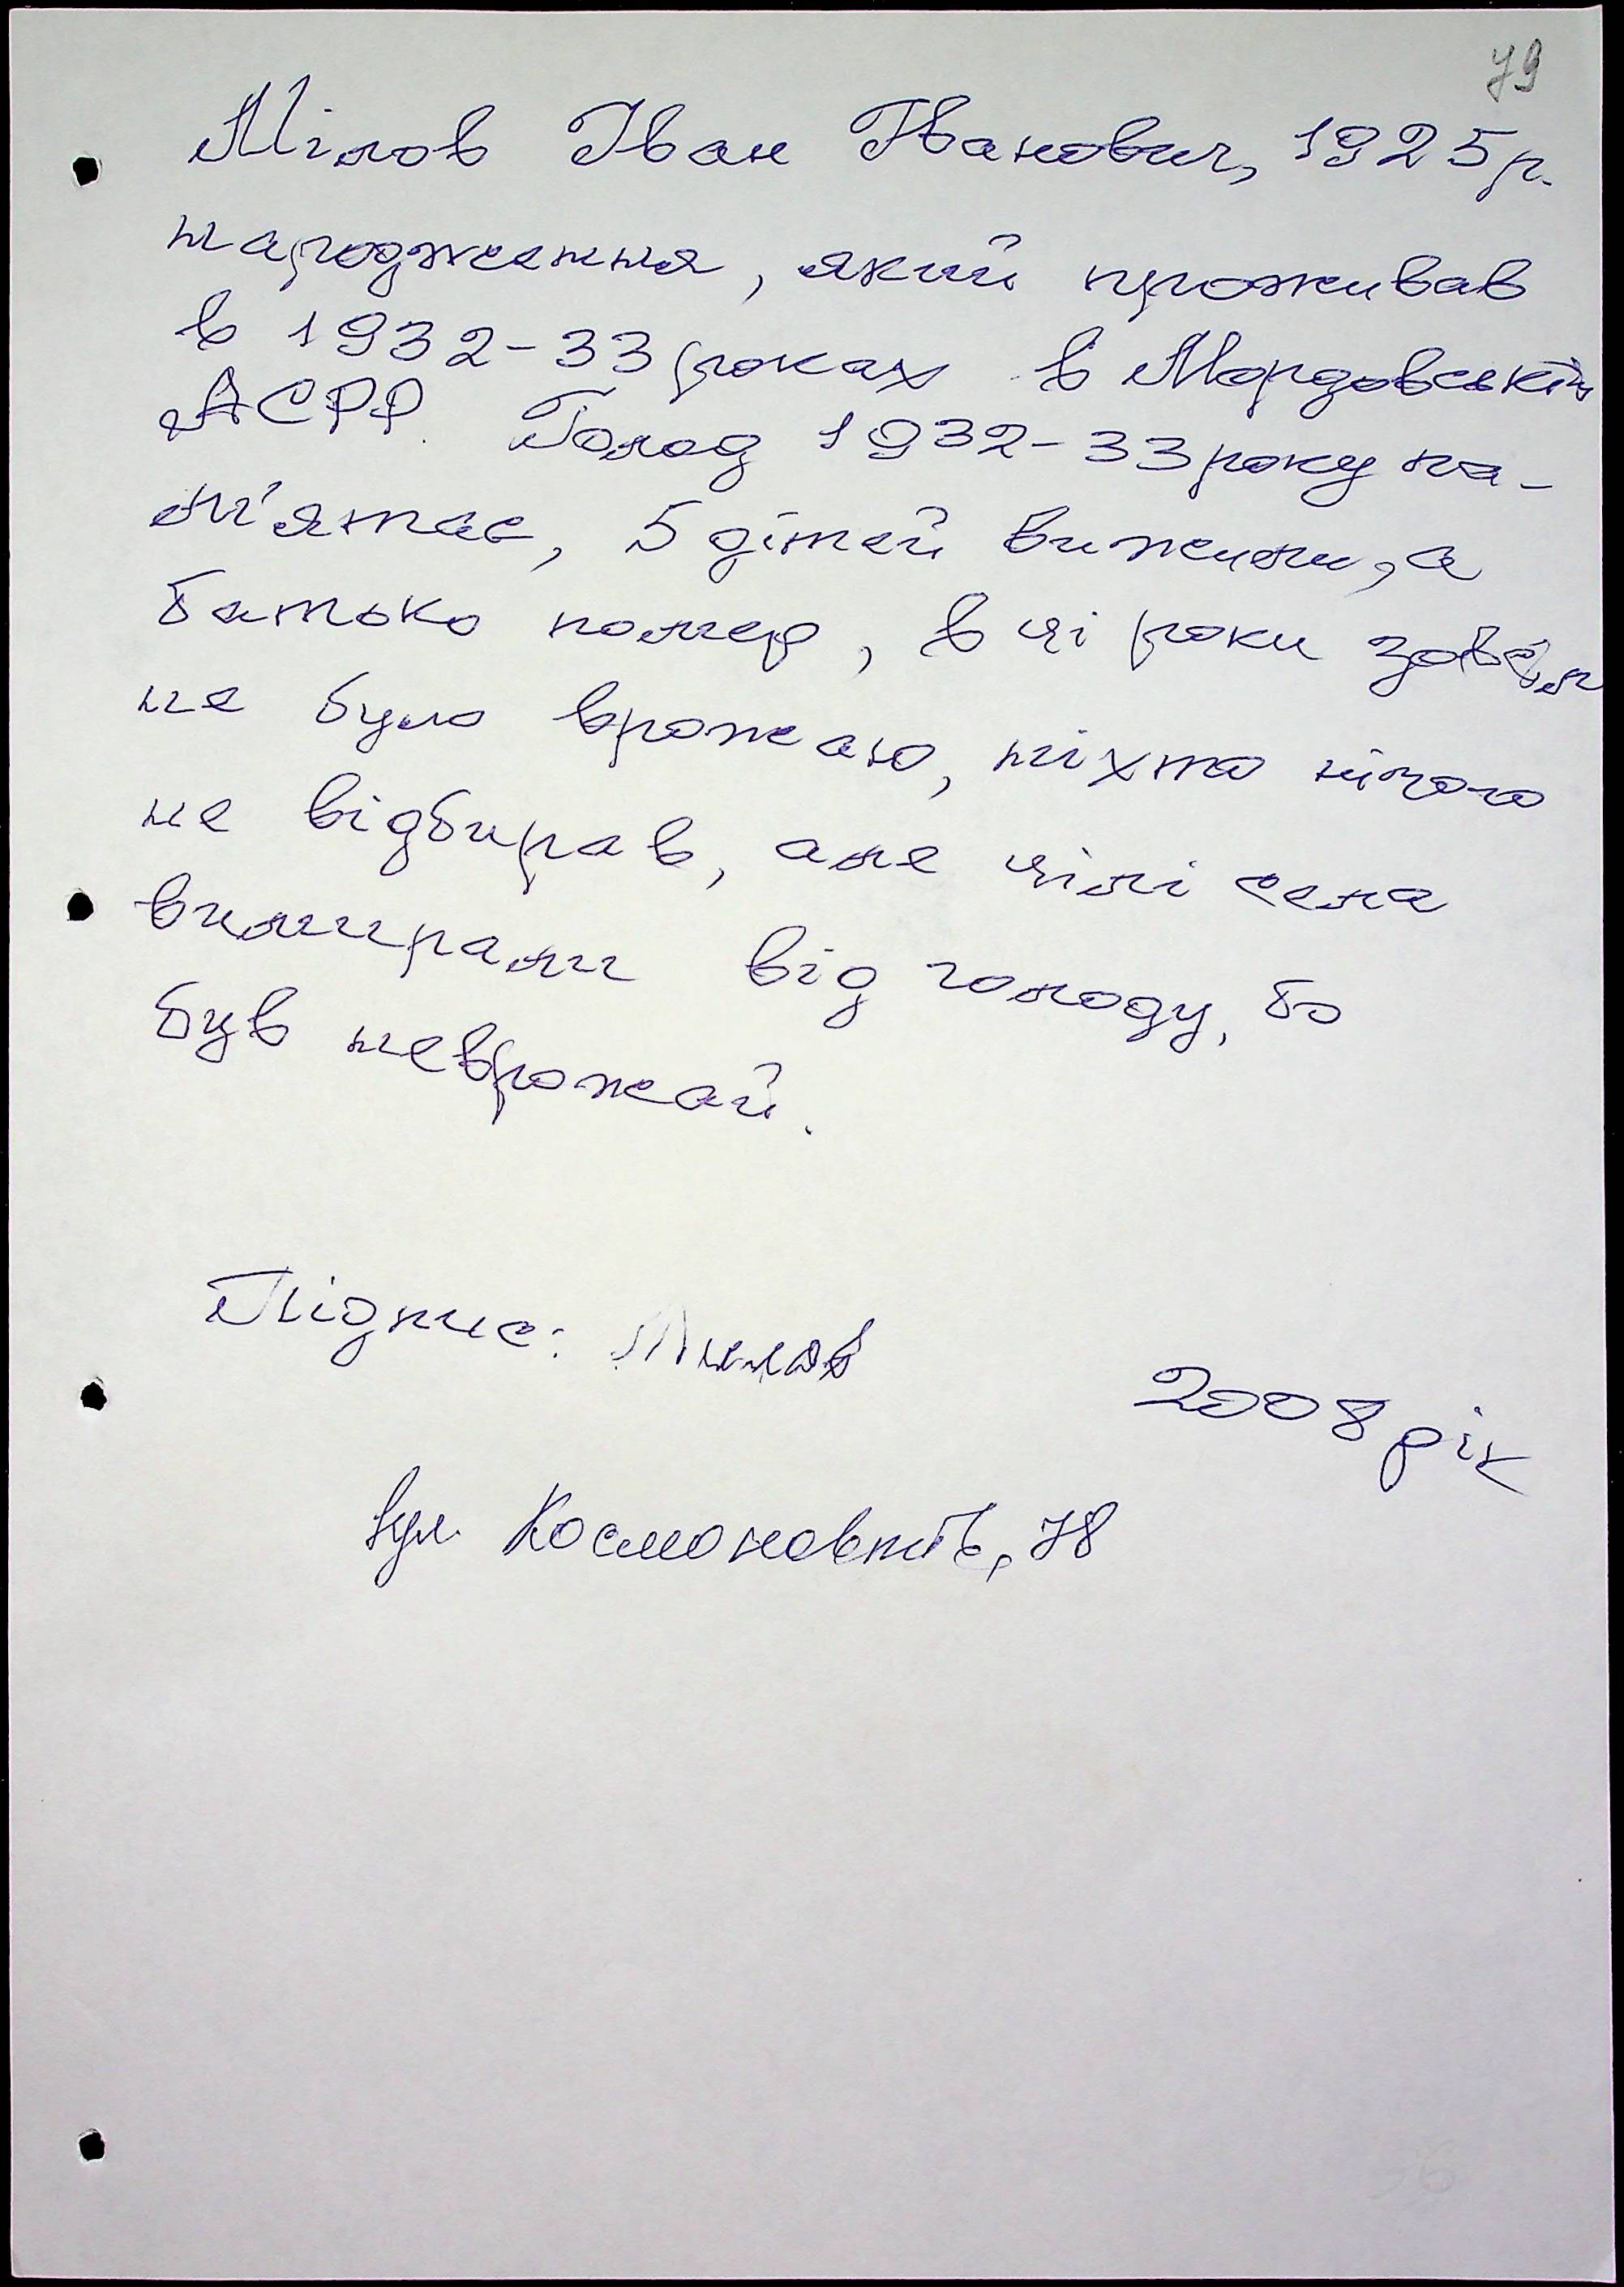 79
Мілов Іван Іванович, 1925 р.
народження, який проживав
в 1932-33 роках в Мордовській
АСРР. Голод 1932-33 року па-
м'ятає, 5 дітей вижили, а
батько помер, в ці роки зовсім
не було врожаю, ніхто нічого
не відбирав, але цілі села
вимирали від голоду, бо
був неврожай.
Підпис: Милов
2008 рік
вул. Космонавтів, 78